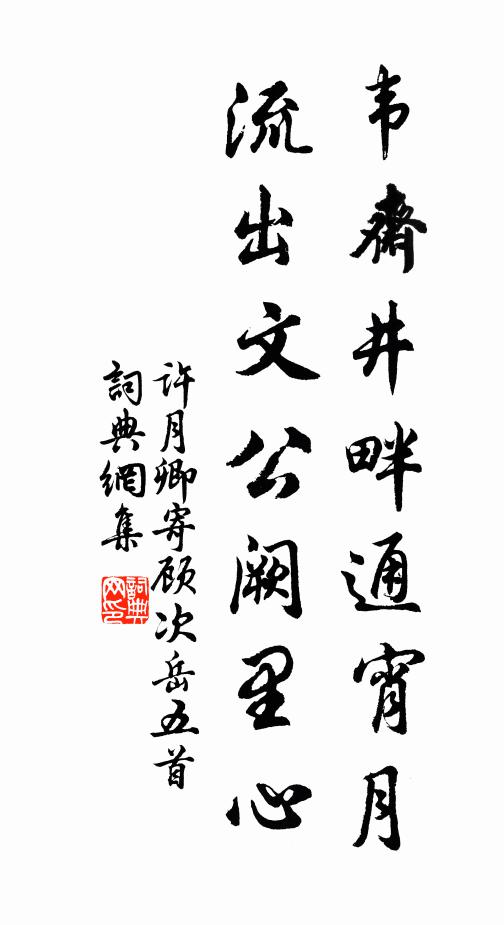 韦齋井畔通宵月
流出文公阙里心
许月卿寄顾次岳五首
詞典網集
詞典網印